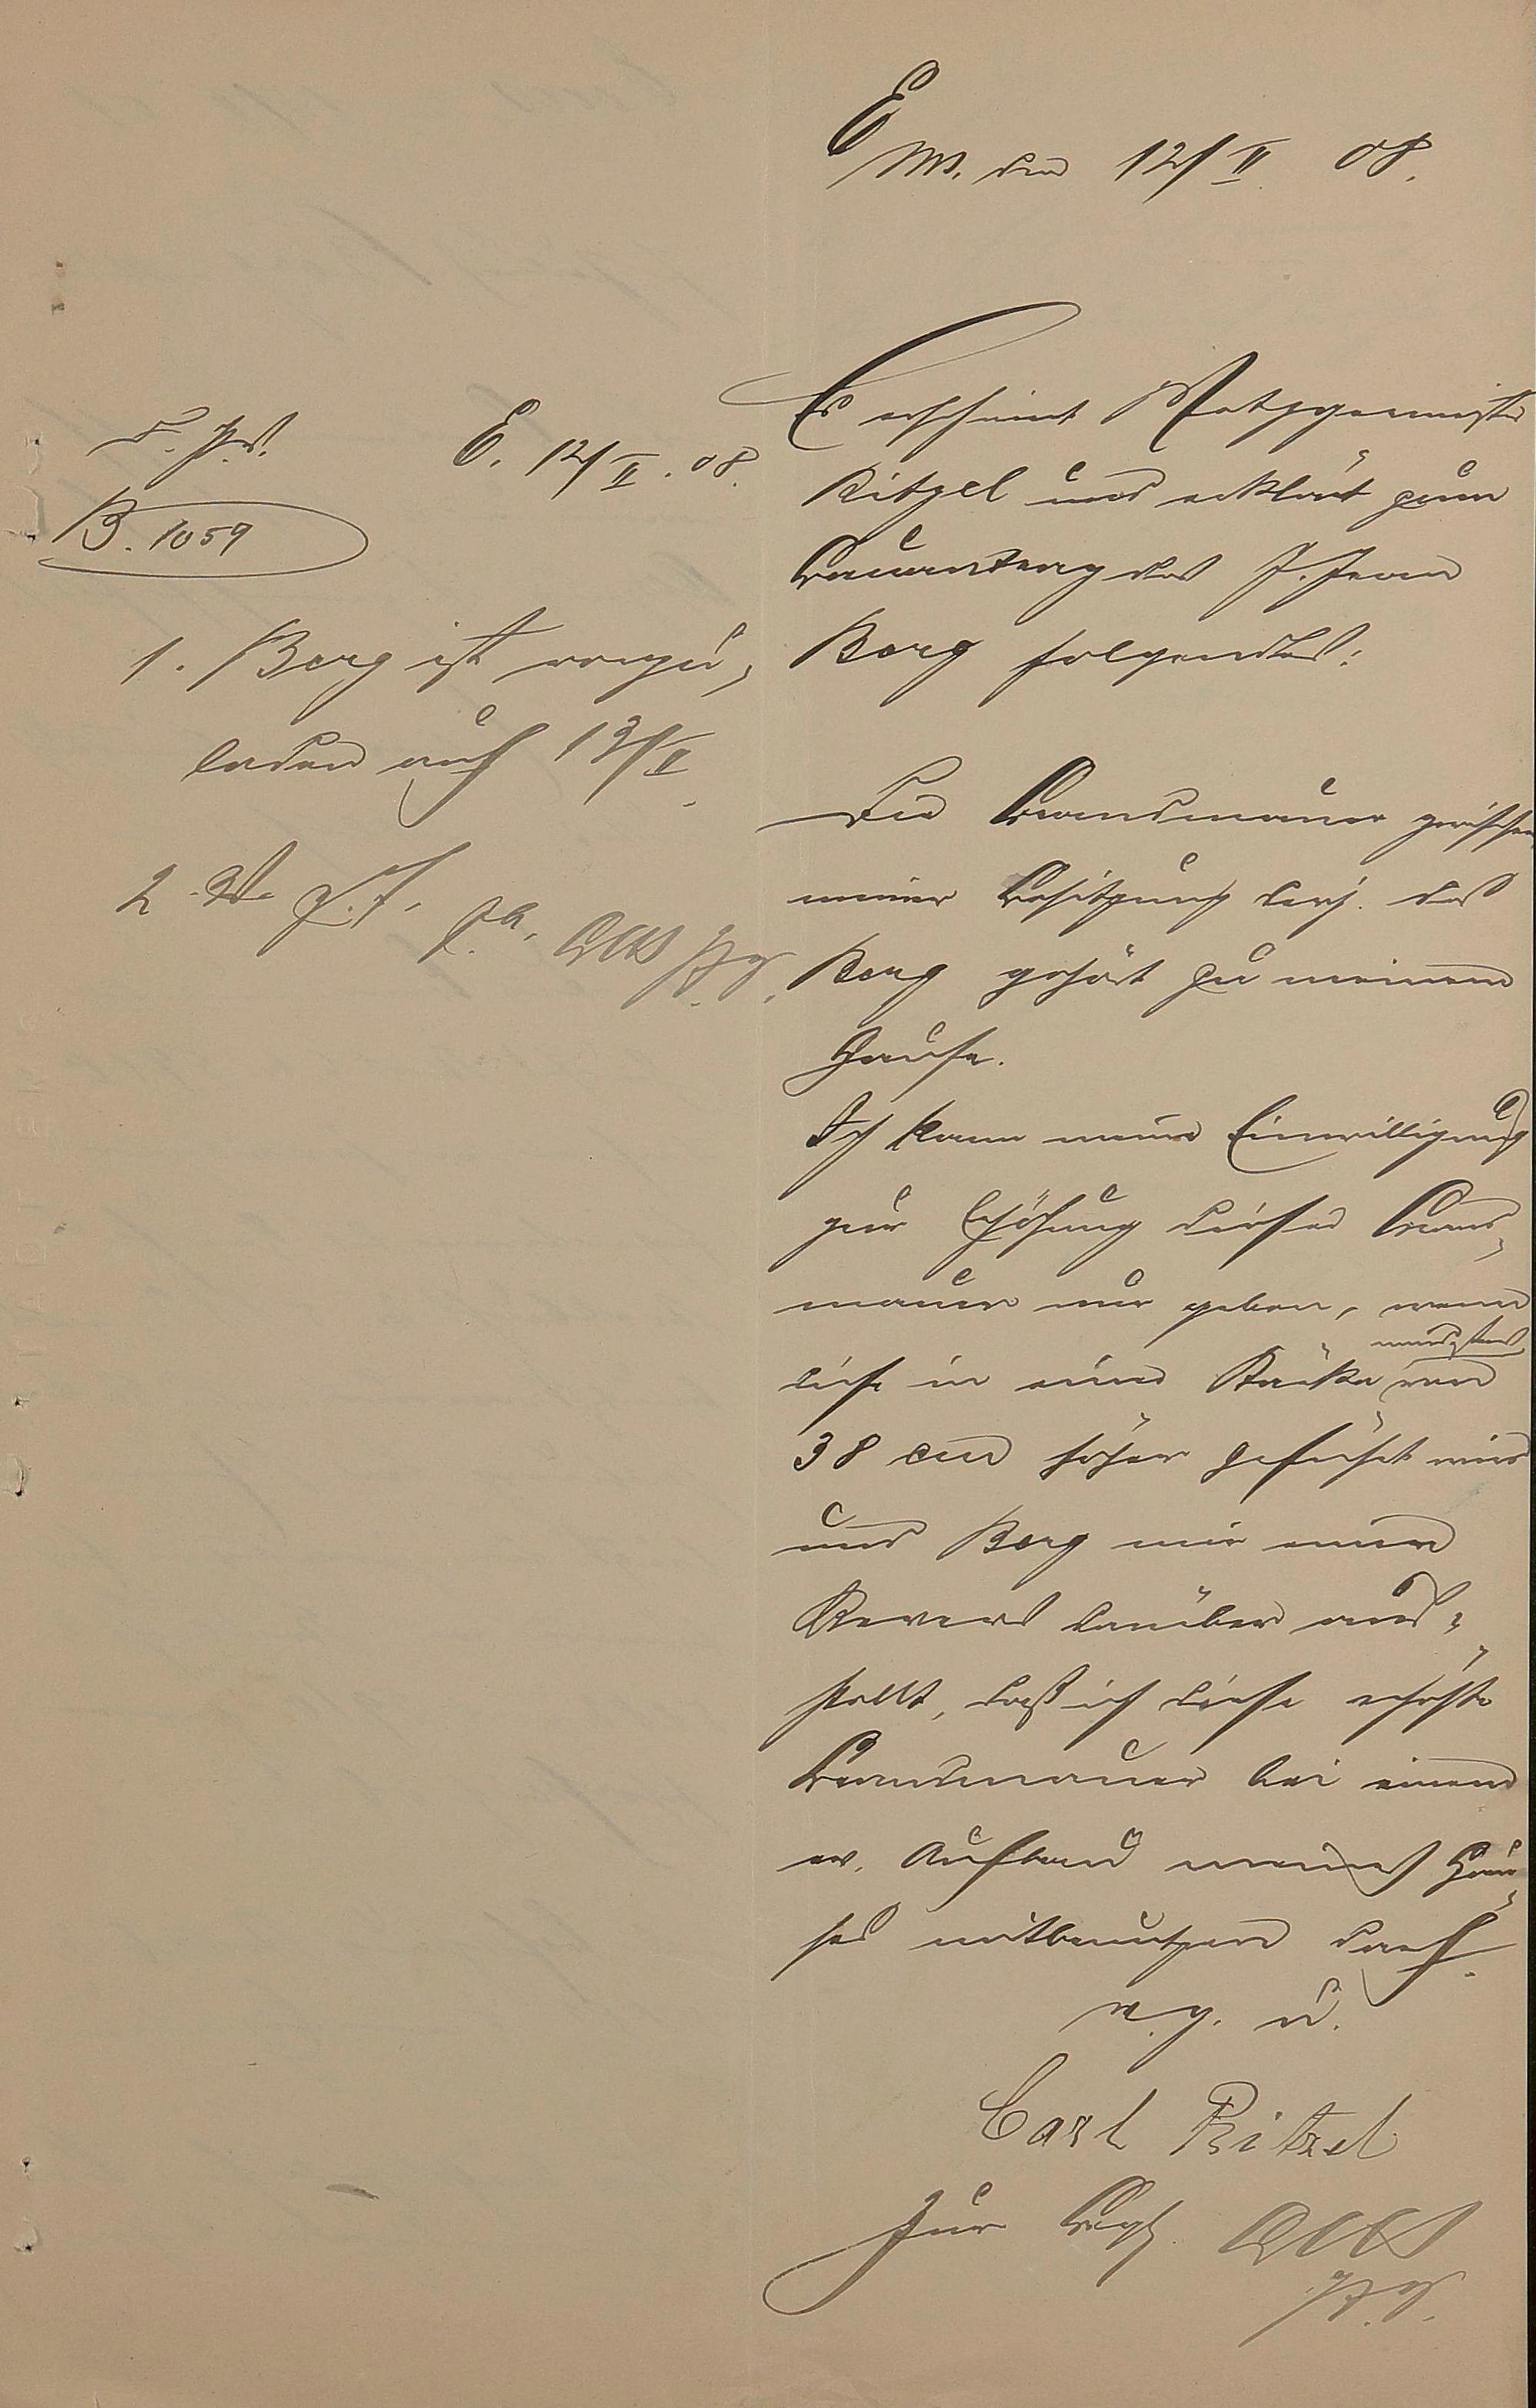 E
M. den 12/II 08.
Es erscheint Metzgermeister
Ritzel und erklärt zum
Bauantrag des J. Jean
Berg folgendes:
Die Brandmauer zwischen
meiner Besitzung bezj. des
Berg gehört zu meinem
Hause.
Ich kann meine Einwilligung
zur Erhöhung dieser Brand-
mauer nur geben, wenn
diese in einer Stärke von mindestens
38 cm höher geführt wird
und Berg mir einen
Revers darüber aus-
stellt, daß ich diese erhöhte
Brandmauer bei einem
ev. Aufbau meines Hau-
ses mitbenutzen darf.
v. g. u.
Carl Ritzel
Zur Begl.
P. S.
E. 12/II. 08.
B. 1059
1. Berg ist vorzu-
laden auf 13/II.
2.